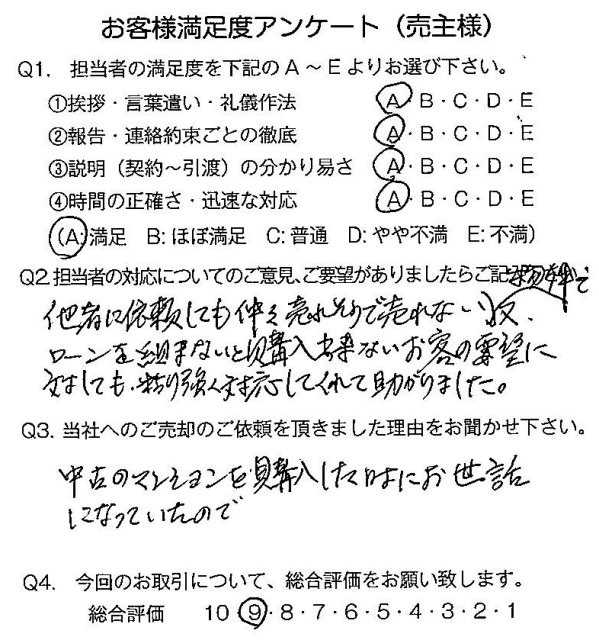 お客様満足度アンケート（売主様）
Q1. 担当者の満足度を下記のA～Eよりお選び下さい。
①挨拶・言葉遣い・礼儀作法 A・B・C・D・E
②報告・連絡約束ごとの徹底 A・B・C・D・E
③説明（契約～引渡）の分かり易さ A・B・C・D・E
④時間の正確さ・迅速な対応 A・B・C・D・E
（A:満足 B:ほぼ満足 C:普通 D:やや不満 E:不満）
Q2.担当者の対応についてのご意見、ご要望がありましたらご記
物件で
他者に依頼しても仲々売れそうで売れない
ローンを組まないと購入出来ないお客の要望に
対しても、粘り強く対応してくれて助かりました。
Q3. 当社へのご売却のご依頼を頂きました理由をお聞かせ下さい。
中古のマンションを購入した時にお世話
になっていたので
Q4. 今回のお取引について、総合評価をお願い致します。
総合評価 10・9・8・7・6・5・4・3・2・1